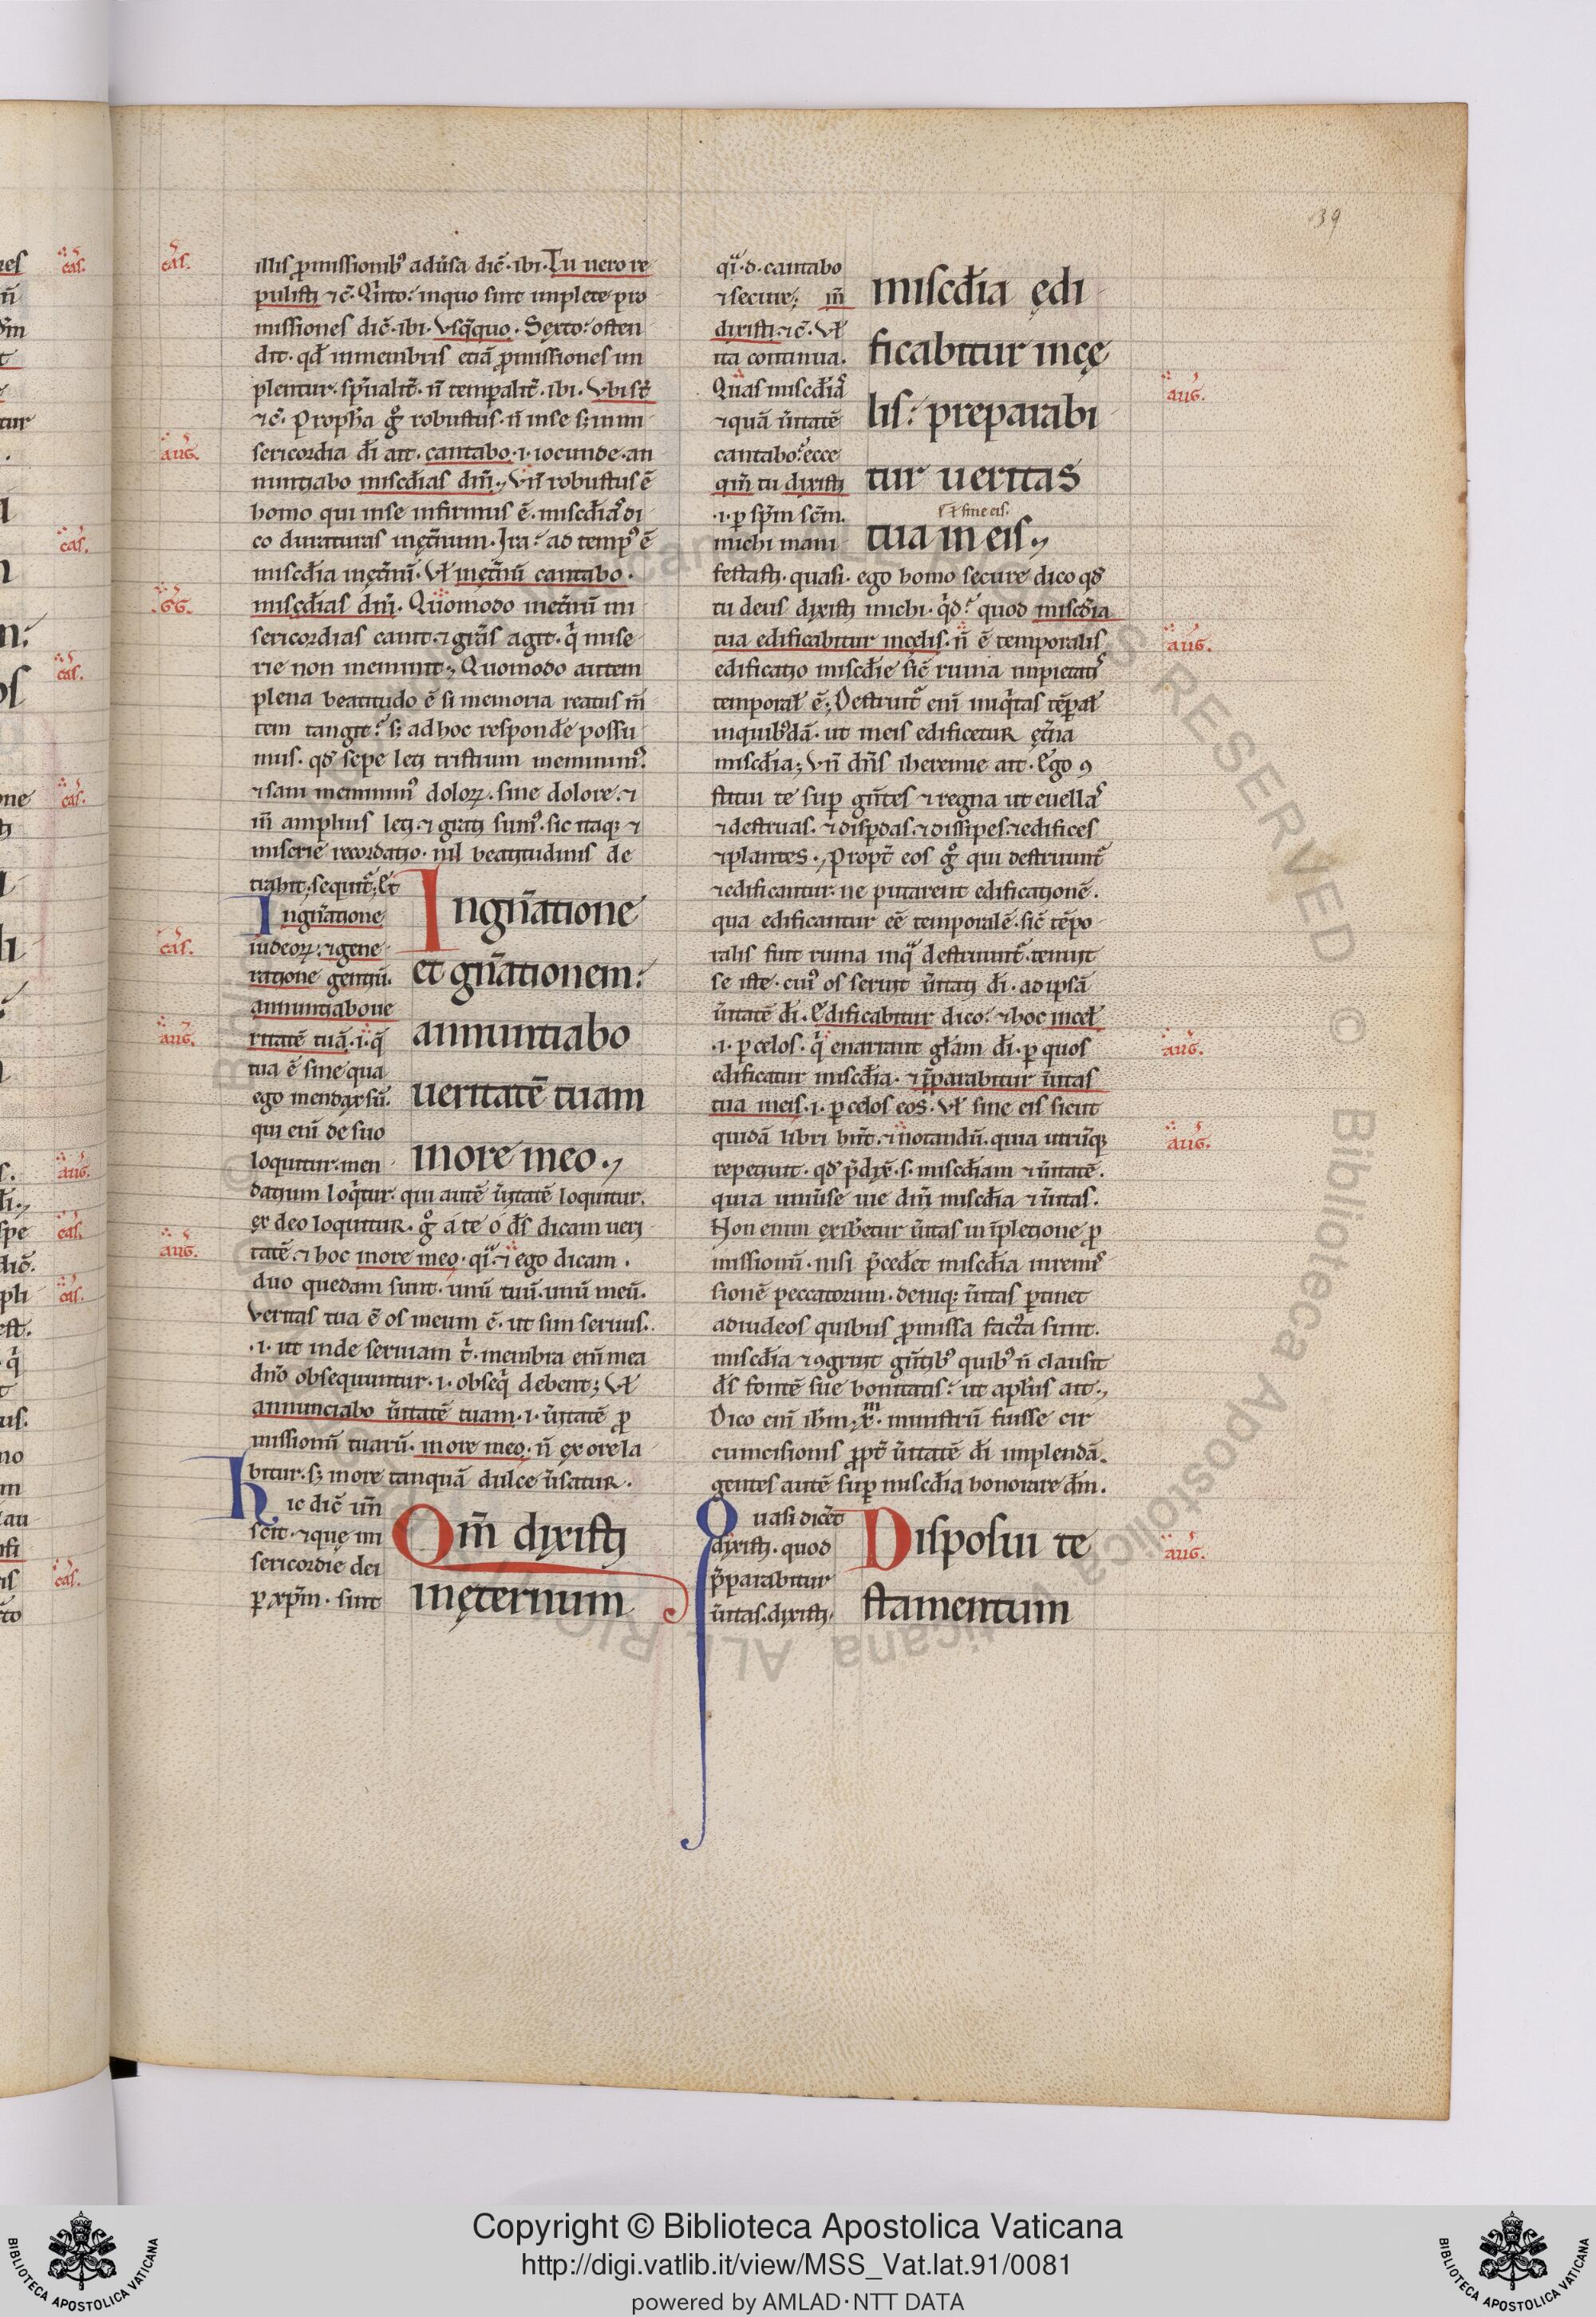 39
illis ꝓmissionib᷒ adũsa dic̃. ibi. Tu uero re
pulisti ⁊c̃. Q̇nto: inquo sint implete pro
missiones dic̃. ibi. Vsq̃quo. Sexto: osten
dit. qd̃ inmembris etiã ꝓmissiones im
plentur. sp̃ualit̃. ñ temꝑalit̃. ibi. Vbi st̃
⁊c̃. Propħa g̊ robustus. ñ inse s; inmi
sericordia dī ait. cantabo .i. iocunde. an
nuntiabo misc̃dias dñi., Vñ robustus ẽ
homo qui inse infirmus ẽ. misc̃dias di
co duraturas inęt̃num. Ita: ad temp᷒ ẽ
misc̃dia inęt̃nũ. Vł inęt̃nũ cantabo.
misc̃dias dñi. Quomodo inet̃nũ mi
sericordias canit. ⁊ gr̃as agit. q̇ mise
rie non meminit; Quomodo autem
plena beatitudo ẽ si memoria reatus m̃
tem tangit: s; ad hoc respond̃e possu
mus. qd̃ sepe leti tristium meminim᷒.
⁊ sani meminim᷒ doloꝝ. sine dolore. ⁊
iñ amplius leti ⁊ grati sum᷒. sic itaq; ⁊
miserie recordatio. nil beatitudinis de
trahit. sequit̃; Et
Ingñatione
iudeoꝝ. ⁊ gene
ratione gentiũ.
annuntiabo ue
ritatẽ tuã .i. q̃
tua ẽ sine qua
ego mendax sũ.
qui enĩ de suo
loquitur. men
Ingñatione
et gñationem:
annuntiabo
ueritatẽ tuam
inore meo.,
datium loq̇tur. qui autẽ ũitatẽ loquitur.
ex deo loquitur. g̊ a te o dẽs dicam ueri
tatẽ. ⁊ hoc inore meo. q̇ ⁊ ego dicam.
duo quedam sunt. unũ tuũ. unũ meũ.
Veritas tua ẽ os meum ẽ. ut sim seruus.
.i. ut inde seruiam ṫ. membra enĩ mea
dño obsequuntur .i. obseq̇ debent; Vł
annunciabo ũitatẽ tuam .i. ũitatẽ ꝓ
missionũ tuarũ. inore meo. ñ ex ore la
bitur. s; inore tanquã dulce ũsatur.
Hic dic̃ uñ
scit. ⁊ que mi
sericordie dei
ꝑ xp̃m. sint
Qm̃ dixisti
inęternum
qͥ .d. cantabo
⁊ secure; iñ
dixisti ⁊c̃. Vł
ita continua.
Quas misc̃dias
⁊ quã ũitatẽ
cantabo: ecce
qm̃ tu dixisti
.i. ꝑ sp̃m sc̃m.
michi mani
misc̃dia ędi
ficabitur incę
lis: preparabi
tur ueritas
ł sine eis.
tua in eis.,
festasti. quasi. ego homo secure dico qd̃
tu deus dixisti michi. q̇d: quod misc̃dia
tua edificabitur incęlis. ñ ẽ temporalis
edificatio misc̃die sic̃ ruina impietatis
temporał ẽ; Destruit̃ enĩ iniq̇tas tẽꝑał
inquib᷒dã. ut ineis edificetur ęt̃na
misc̃dia; Vñ dñs iheremie ait. Ego ꝯ
stitui te suꝑ gñtes ⁊ regna ut euellas
⁊ destruas. ⁊ disꝑdas. ⁊ dissipes. ⁊ edifices
⁊ plantes., Propt̃ eos g̊ qui destruunt̃
⁊ edificantur. ne putarent edificationẽ.
qua edificantur eẽ temporalẽ. sic̃ tẽpo
ralis fuit ruina inq̃ destruunt̃. tenuit
se iste. cui᷒ os seruit ũitati dī. ad ipsã
ũitatẽ dī. Edificabitur dico: ⁊ hoc incel̃
.i. ꝑ celos. q̇ enarrant gl̃am dī. ꝑ quos
edificatur misc̃dia. ⁊ p̃parabitur ũitas
tua ineis .i. ꝑ celos eos. Vł sine eis sicut
quidã libri hñt. ⁊ notandũ. quia utrũq;
repetiuit. qd̃ p̃dix̃ .s. misc̃diam ⁊ ũitatẽ.
quia uniũse uie dñi misc̃dia ⁊ ũitas.
Non enim exiberetur ũitas in ĩpletione ꝓ
missionũ. nisi p̃cederet misc̃dia inremis
sionẽ peccatorum. deniq; ũitas ꝑtinet
ad iudeos quibus ꝓmissa facta sunt.
misc̃dia ⁊ ꝯgruit gñtib᷒ quib᷒ ñ clausit
dẽs fontẽ sue bonitatis: ut apl̃us ait.,
Dico enĩ ihm̃ xm̃. ministrũ fuisse cir
cumcisionis ꝓpt̃ ũitatẽ dī implendã.
gentes autẽ suꝑ misc̃dia honorare dm̃.
Quasi dicet̃
dixisti. quod
p̃parabitur
ũitas. dixisti.
Disposui te
stamentum
cas.
aug.
GG.
cas.
aug.
aug.
aug.
aug.
aug.
aug.
aug.
Copyright © Biblioteca Apostolica Vaticana
http://digi.vatlib.it/view/MSS_Vat.lat.91/0081
powered by AMLAD·NTT DATA
BIBLIOTECA APOSTOLICA VATICANA
BIBLIOTECA APOSTOLICA VATICANA